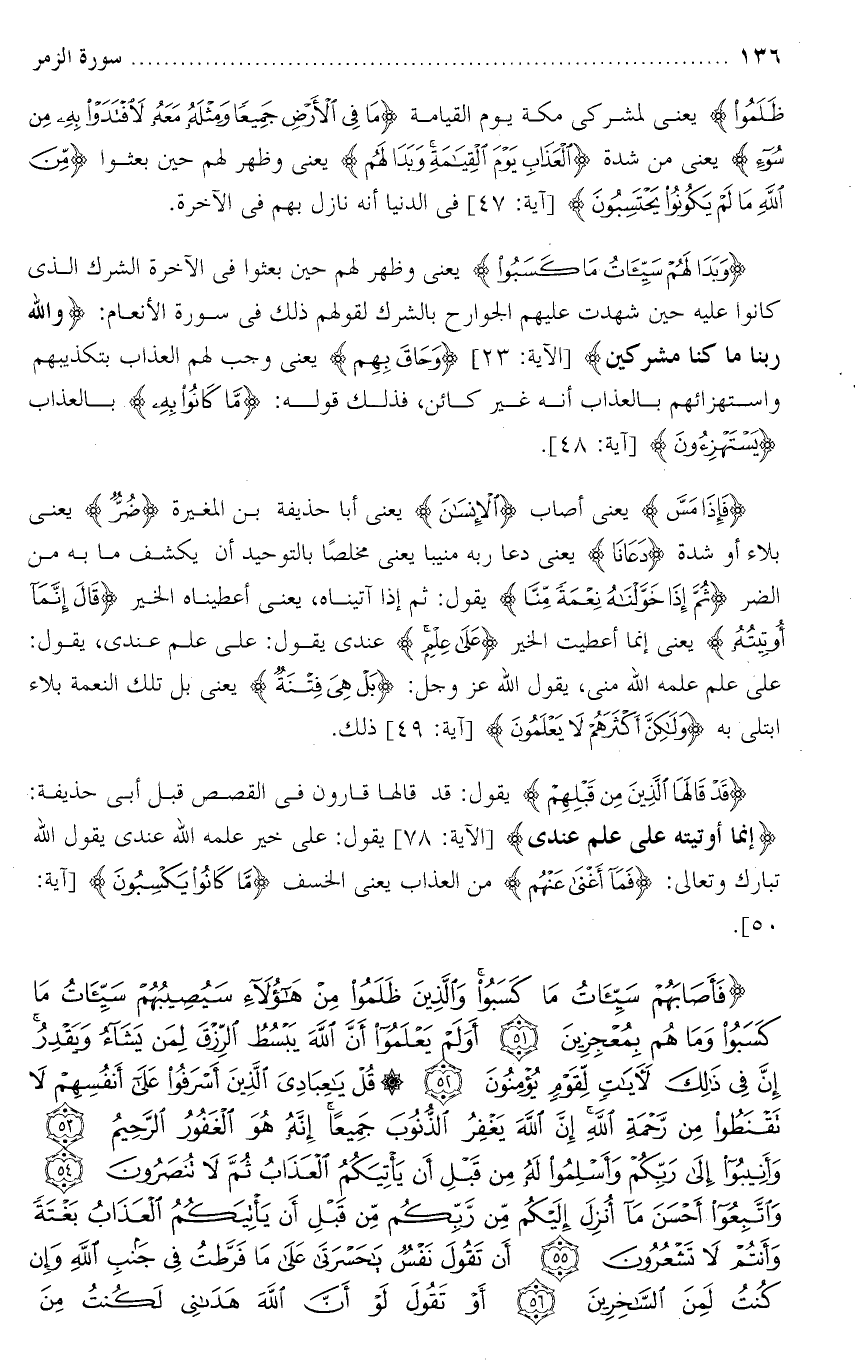 ١٣٦ ........................................................................ سورة الزمر
ظَلَمُوا۟ ﴾ يعنى لمشركى مكة يوم القيامة ﴿مَا فِى ٱلْأَرْضِ جَمِيعًا وَمِثْلَهُۥ مَعَهُۥ لَٱفْتَدَوْا۟ بِهِۦ مِن
سُوٓءِ ﴾ يعنى من شدة ﴿ٱلْعَذَابِ يَوْمَ ٱلْقِيَـٰمَةِ ۚ وَبَدَا لَهُم ﴾ يعنى وظهر لهم حين بعثوا ﴿مِّنَ
ٱللَّهِ مَا لَمْ يَكُونُوا۟ يَحْتَسِبُونَ ﴾ [آية: ٤٧] فى الدنيا أنه نازل بهم فى الآخرة.
﴿وَبَدَا لَهُمْ سَيِّـَٔاتُ مَا كَسَبُوا۟ ﴾ يعنى وظهر لهم حين بعثوا فى الآخرة الشرك الذى
كانوا عليه حين شهدت عليهم الجوارح بالشرك لقولهم ذلك فى سورة الأنعام: ﴿والله
ربنا ما كنا مشركين﴾ [الآية: ٢٣] ﴿وَحَاقَ بِهِم ﴾ يعنى وجب لهم العذاب بتكذيبهم
واستهزائهم بالعذاب أنه غير كائن، فذلك قوله: ﴿مَّا كَانُوا۟ بِهِۦ ﴾ بالعذاب
﴿يَسْتَهْزِءُونَ ﴾ [آية: ٤٨].
﴿فَإِذَا مَسَّ ﴾ يعنى أصاب ﴿ٱلْإِنسَـٰنَ ﴾ يعنى أبا حذيفة بن المغيرة ﴿ضُرٌّ ﴾ يعنى
بلاء أو شدة ﴿دَعَانَا ﴾ يعنى دعا ربه منيبا يعنى مخلصًا بالتوحيد أن يكشف ما به من
الضر ﴿ثُمَّ إِذَا خَوَّلْنَـٰهُ نِعْمَةً مِّنَّا ﴾ يقول: ثم إذا آتيناه، يعنى أعطيناه الخير ﴿قَالَ إِنَّمَآ
أُوتِيتُهُۥ ﴾ يعنى إنما أعطيت الخير ﴿عَلَىٰ عِلْمٍۭ ۚ ﴾ عندى يقول: على علم عندى، يقول:
على علم علمه الله منى، يقول الله عز وجل: ﴿بَلْ هِىَ فِتْنَةٌ ﴾ يعنى بل تلك النعمة بلاء
ابتلى به ﴿وَلَـٰكِنَّ أَكْثَرَهُمْ لَا يَعْلَمُونَ ﴾ [آية: ٤٩] ذلك.
﴿قَدْ قَالَهَا ٱلَّذِينَ مِن قَبْلِهِمْ ﴾ يقول: قد قالها قارون فى القصص قبل أبى حذيفة:
﴿إنما أوتيته على علم عندى﴾ [الآية: ٧٨] يقول: على خير علمه الله عندى يقول الله
تبارك وتعالى: ﴿فَمَآ أَغْنَىٰ عَنْهُم ﴾ من العذاب يعنى الخسف ﴿مَّا كَانُوا۟ يَكْسِبُونَ ﴾ [آية:
٥٠].
﴿فَأَصَابَهُمْ سَيِّـَٔاتُ مَا كَسَبُوا۟ ۚ وَٱلَّذِينَ ظَلَمُوا۟ مِنْ هَـٰٓؤُلَآءِ سَيُصِيبُهُمْ سَيِّـَٔاتُ مَا
كَسَبُوا۟ وَمَا هُم بِمُعْجِزِينَ ٥١ أَوَلَمْ يَعْلَمُوٓا۟ أَنَّ ٱللَّهَ يَبْسُطُ ٱلرِّزْقَ لِمَن يَشَآءُ وَيَقْدِرُ ۚ
إِنَّ فِى ذَٰلِكَ لَـَٔايَـٰتٍ لِّقَوْمٍ يُؤْمِنُونَ ٥٢ ۞ قُلْ يَـٰعِبَادِىَ ٱلَّذِينَ أَسْرَفُوا۟ عَلَىٰٓ أَنفُسِهِمْ لَا
تَقْنَطُوا۟ مِن رَّحْمَةِ ٱللَّهِ ۚ إِنَّ ٱللَّهَ يَغْفِرُ ٱلذُّنُوبَ جَمِيعًا ۚ إِنَّهُۥ هُوَ ٱلْغَفُورُ ٱلرَّحِيمُ ٥٣
وَأَنِيبُوٓا۟ إِلَىٰ رَبِّكُمْ وَأَسْلِمُوا۟ لَهُۥ مِن قَبْلِ أَن يَأْتِيَكُمُ ٱلْعَذَابُ ثُمَّ لَا تُنصَرُونَ ٥٤
وَٱتَّبِعُوٓا۟ أَحْسَنَ مَآ أُنزِلَ إِلَيْكُم مِّن رَّبِّكُم مِّن قَبْلِ أَن يَأْتِيَكُمُ ٱلْعَذَابُ بَغْتَةً
وَأَنتُمْ لَا تَشْعُرُونَ ٥٥ أَن تَقُولَ نَفْسٌ يَـٰحَسْرَتَىٰ عَلَىٰ مَا فَرَّطتُ فِى جَنۢبِ ٱللَّهِ وَإِن
كُنتُ لَمِنَ ٱلسَّـٰخِرِينَ ٥٦ أَوْ تَقُولَ لَوْ أَنَّ ٱللَّهَ هَدَىٰنِى لَكُنتُ مِنَ